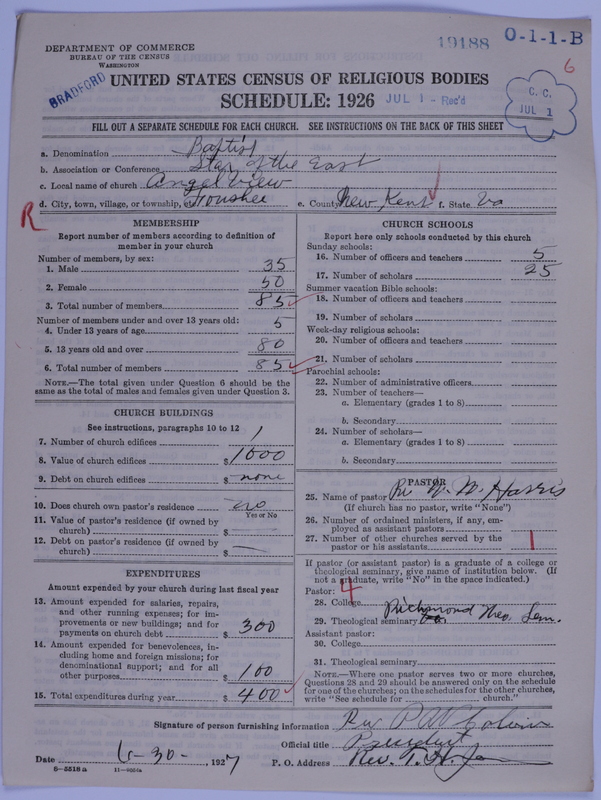 DEPARTMENT OF COMMERCE
BUREAU OF THE CENSUS
WASHINGTON
19188 O-1-1-B
6
BRADFORD
UNITED STATES CENSUS OF RELIGIOUS BODIES
SCHEDULE: 1926 JUL 1 - Rec'd
C. C.
JUL 1
FILL OUT A SEPARATE SCHEDULE FOR EACH CHURCH. SEE INSTRUCTIONS ON THE BACK OF THIS SHEET
a. Denomination Baptist
b. Association or Conference Star of the East
c. Local name of church Angel View
d. City, town, village, or township, or e. County New Kent f. State Va
R
MEMBERSHIP
Report number of members according to definition of
member in your church
Number of members, by sex:
1. Male 35
2. Female 50
3. Total number of members 85
Number of members under and over 13 years old:
4. Under 13 years of age 5
5. 13 years old and over 80
6. Total number of members 85
NOTE.—The total given under Question 6 should be
same as the total of males and females given under Question 3.
CHURCH BUILDINGS
See instructions, paragraphs 10 to 12
7. Number of church edifices 1
8. Value of church edifices $ 1000
9. Debt on church edifices $ none
10. Does church own pastor's residence no
Yes or No
11. Value of pastor's residence (if owned by
church) $ —
12. Debt on pastor's residence (if owned by
church) $ —
EXPENDITURES
Amount expended by your church during last fiscal year
13. Amount expended for salaries, repairs,
and other running expenses; for im-
provements or new buildings; and for
payments on church debt $ 300
14. Amount expended for benevolences, in-
cluding home and foreign missions; for
denominational support; and for all
other purposes $ 100
15. Total expenditures during year $ 400
CHURCH SCHOOLS
Report here only schools conducted by this church
Sunday schools:
16. Number of officers and teachers 5
17. Number of scholars 25
Summer vacation Bible schools:
18. Number of officers and teachers
19. Number of scholars
Week-day religious schools:
20. Number of officers and teachers
21. Number of scholars
Parochial schools:
22. Number of administrative officers
23. Number of teachers—
a. Elementary (grades 1 to 8)
b. Secondary
24. Number of scholars—
a. Elementary (grades 1 to 8)
b. Secondary
PASTOR
25. Name of pastor W. Harris
(If church has no pastor, write "None")
26. Number of ordained ministers, if any, em-
ployed as assistant pastors
27. Number of other churches served by the
pastor or his assistants 1
If pastor (or assistant pastor) is a graduate of a college or
theological seminary, give name of institution below. (If
not a graduate, write "No" in the space indicated.)
Pastor: 4
28. College
29. Theological seminary Richmond Theo. Sem.
Assistant pastor:
30. College
31. Theological seminary
NOTE.—Where one pastor serves two or more churches,
Questions 28 and 29 should be answered only on the schedule
for one of the churches; on the schedules for the other churches,
write "See schedule for church."
Signature of person furnishing information
Official title President
Date 6-30- 1927 P. O. Address Rev.
8-5518a 11-9054a